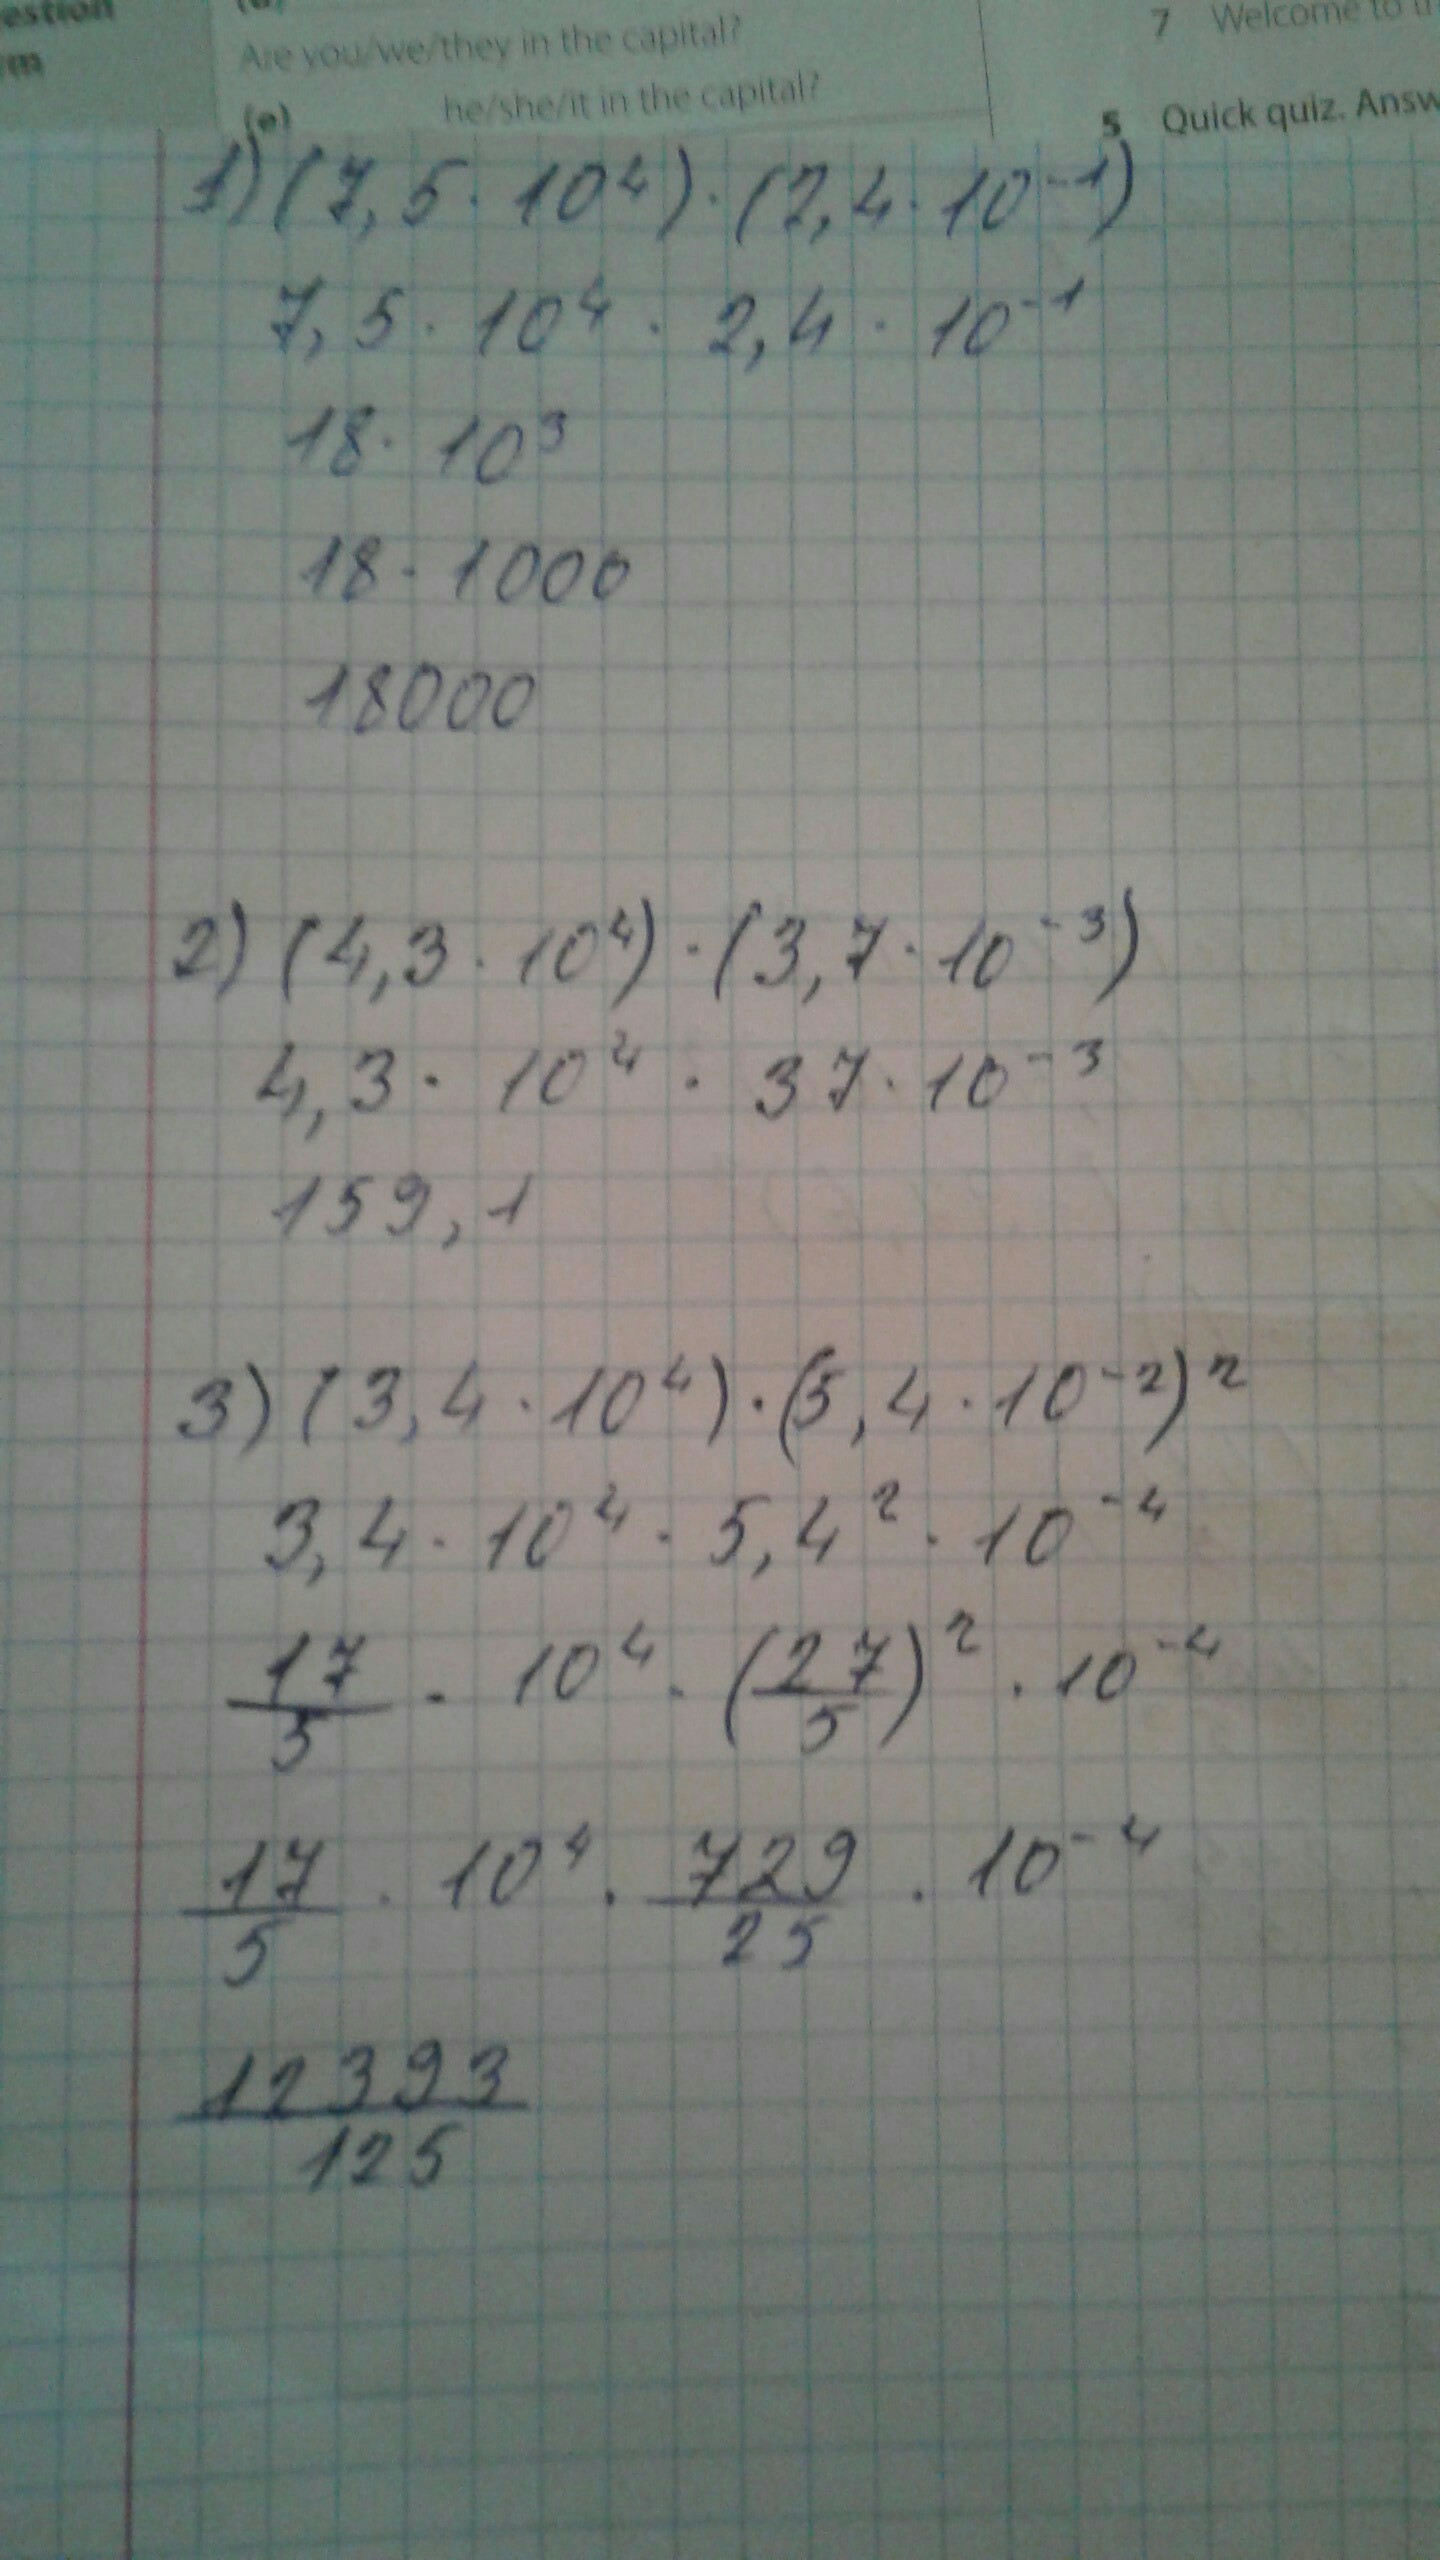 estion
rm
Are you/we/they in the capital?
(e) he/she/it in the capital?
7 Welcome to
5 Quick quiz. Answ
1) (7,5 · 10⁴) · (2,4 · 10⁻¹)
7,5 · 10⁴ · 2,4 · 10⁻¹
18 · 10³
18 · 1000
18000
2) (4,3 · 10⁴) · (3,7 · 10⁻³)
4,3 · 10⁴ · 37 · 10⁻³
159,1
3) (3,4 · 10⁴) · (5,4 · 10⁻²)²
3,4 · 10⁴ · 5,4² · 10⁻⁴
17/5 · 10⁴ · (27/5)² · 10⁻⁴
17/5 · 10⁴ · 729/25 · 10⁻⁴
12393/125